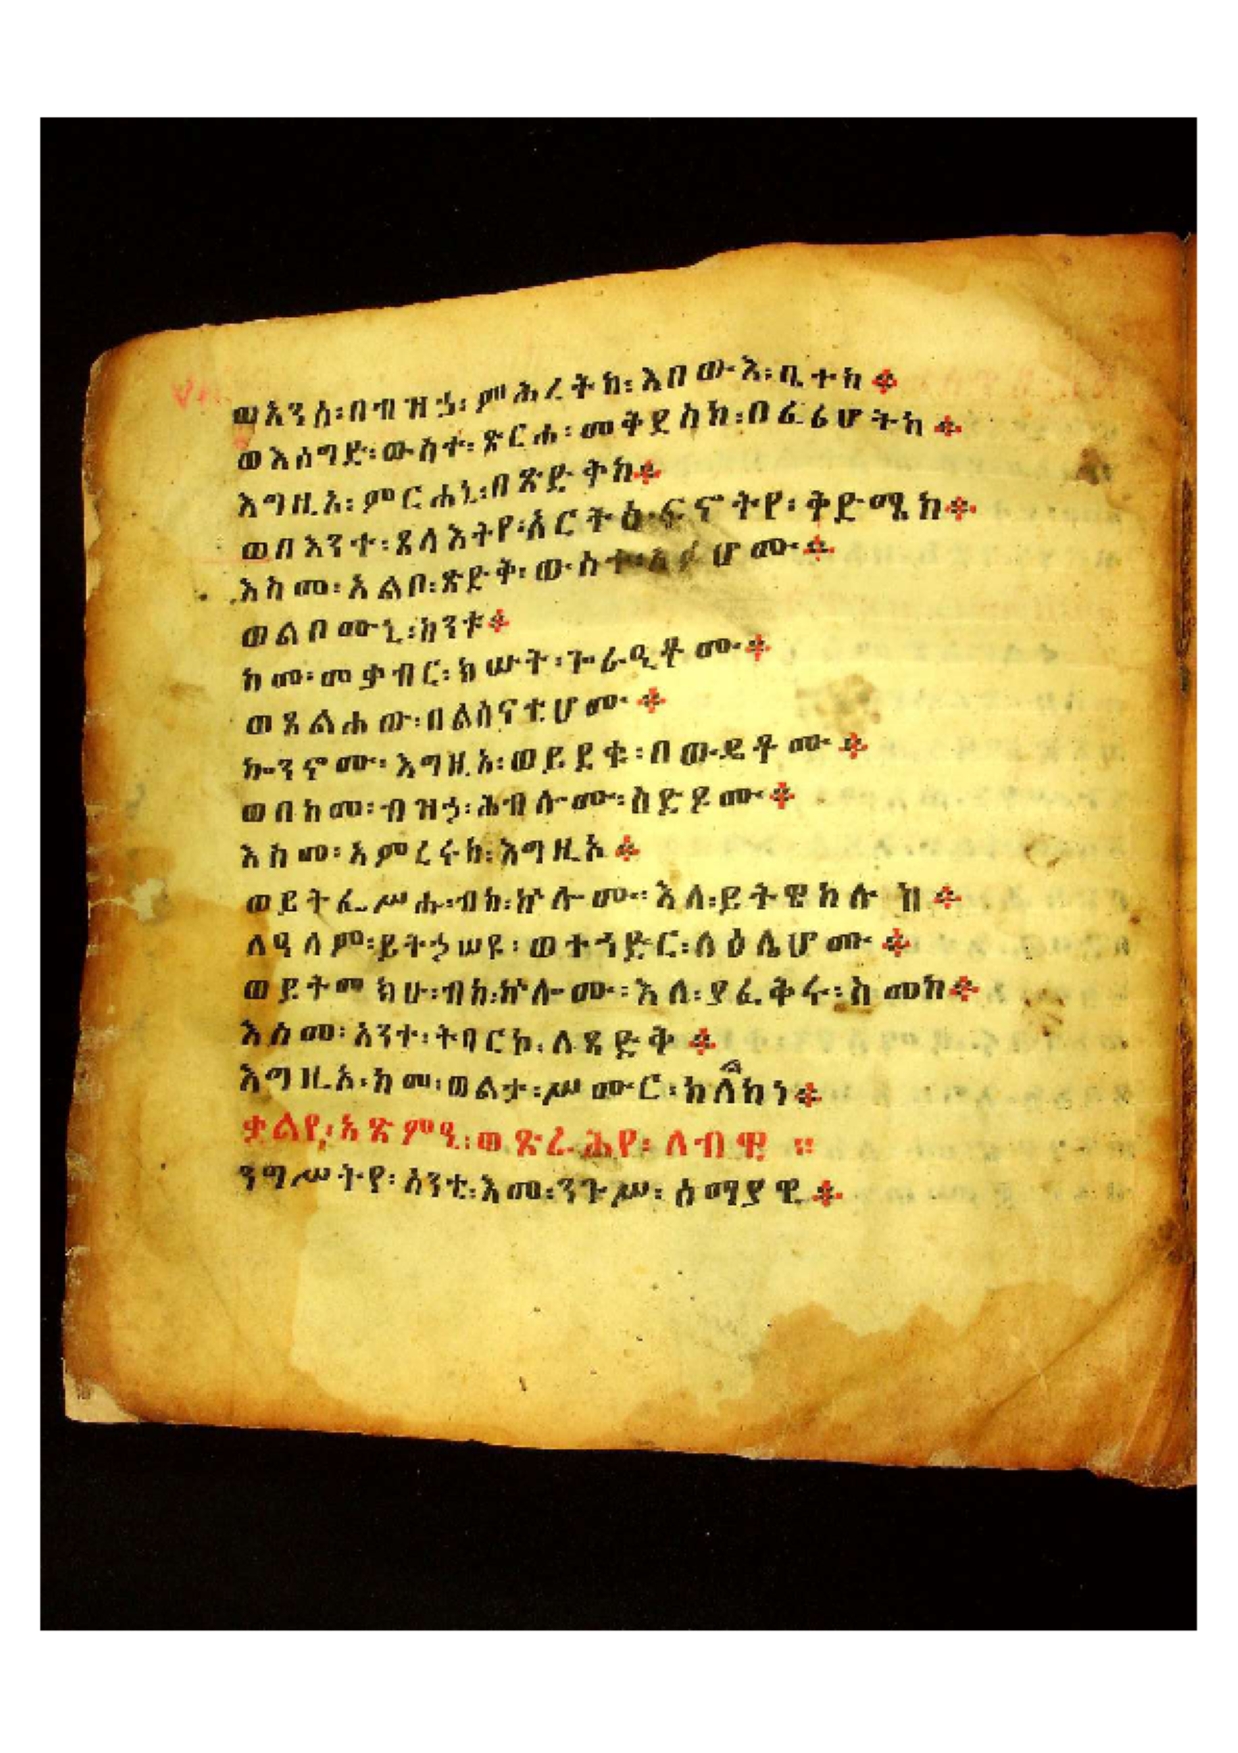 ወአንሰ፡በብዝኃ፡ምሕረትከ፡እበውእ፡ቤተከ፨
ወእሰግድ፡ውስተ፡ጽርሐ፡መቅደስከ፡በፈሪሆትከ፨
እግዚአ፡ምርሐኒ፡በጽድቅከ፨
ወበእንተ፡ጸላእትየ፡አርትዕ፡ፍኖትየ፡ቅድሜከ፨
እስመ፡አልቦ፡ጽድቅ፡ውስተ፡አፉሆሙ፨
ወልቦሙኒ፡ከንቱ፨
ከመ፡መቃብር፡ክሡት፡ጐራዒቶሙ፨
ወጸልሐው፡በልሳናቲሆሙ፨
ኰንኖሙ፡እግዚአ፡ወይደቁ፡በውዴቶሙ፨
ወበከመ፡ብዝኃ፡ሕብሎሙ፡ስድዶሙ፨
እስመ፡አምረሩከ፡እግዚአ፨
ወይትፌሥሑ፡ብከ፡ኵሎሙ፡እለ፡ይትዌከሉ ብከ፨
ለዓለም፡ይትኃሠዩ፡ወተኀድር፡ላዕሌሆሙ፨
ወይትመክሁ፡ብከ፡ኵሎሙ፡እለ፡ያፈቅሩ፡ስመከ፨
እስመ፡አንተ፡ትባርኮ፡ለጻድቅ፨
እግዚአ፡ከመ፡ወልታ፡ሥሙር፡ከለልከነ፨
ቃልየ፡አጽምዒ፡ወጽራሕየ፡ለብዊ ።
ንግሥትየ፡አንቲ፡እመ፡ንጉሥ፡ሰማያዊ፨